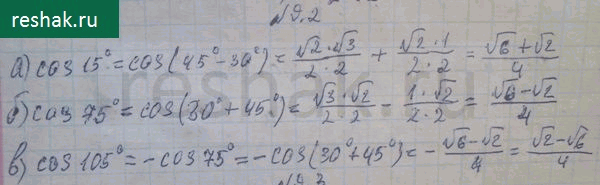 reshak.ru
№9.2
а) cos 15° = cos(45° - 30°) = √2·√3/2·2 + √2·1/2·2 = √6+√2/4
б) cos 75° = cos(30° + 45°) = √3·√2/2·2 - 1·√2/2·2 = √6-√2/4
в) cos 105° = -cos 75° = -cos(30° + 45°) = - √6-√2/4 = √2-√6/4